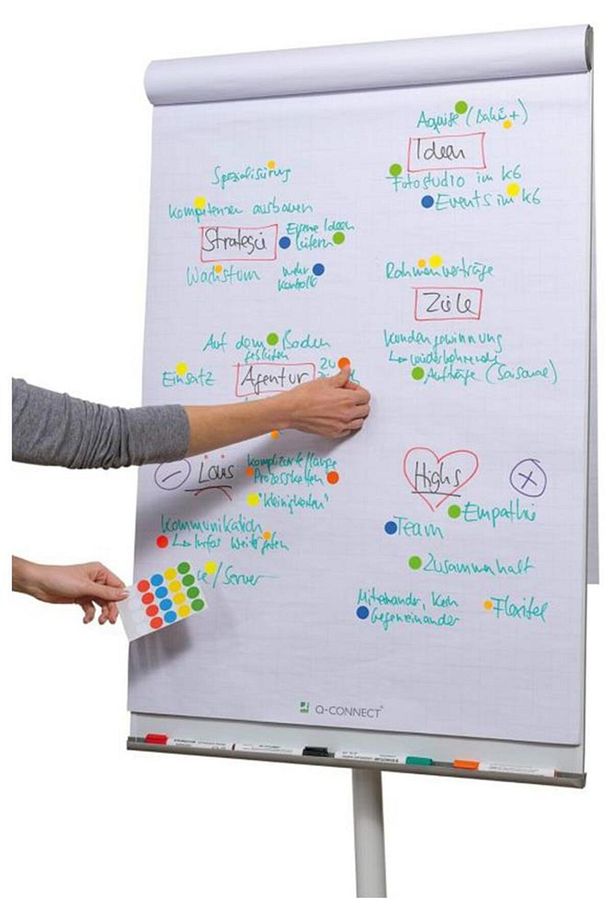 Aquise (
Ideen
Fotostudio im K6
Events im K6
Spezialisirung
Kompetenzen ausbauen
Strategie
Eigene Ideen
liefern
Wachstum
mehr
Kontrolle
Rahmenverträge
Ziele
Kundengewinnung
wiederkehrende
Aufträge (
Auf dem Boden
Einsatz
Agentur
zu
Komplizierte/lange
Prozessketten
"Kleinigkeiten"
Kommunikation
Infos
/Server
Highs
x
Empathie
Team
Zusammenhalt
Miteinander, kein
Gegeneinander
Q-CONNECT